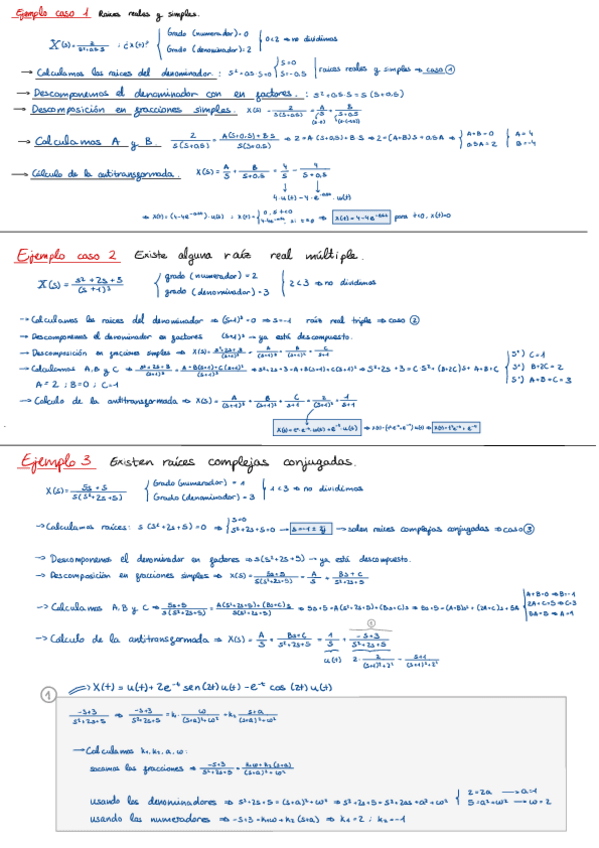 Ejemplo caso 1 Raices reales y simples.
X(s) = 2/(s²+0.5·s) ; ¿x(t)? { Grado (numerador) = 0 Grado (denominador): 2 } 0<2 ⇒ no dividimos
→ Calculamos las raices del denominador. : s²+0.5·s=0 { s=0 s=-0.5 | raices reales y simples → caso ①
→ Descomponemos el denominador con en factores. : s²+0.5·s = s(s+0.5)
→ Descomposición en fracciones simples. X(s) = 2/(s(s+0.5)) = A/s + B/(s+0.5)
→ Calculamos A y B. 2/(s(s+0.5)) = (A(s+0.5)+B·s)/(s(s+0.5)) ⇒ 2 = A(s+0.5)+B·s ⇒ 2 = (A+B)s + 0.5A ⇒ { A+B=0 0.5A=2 { A=4 B=-4
→ Cálculo de la antitransformada. X(s) = A/s + B/(s+0.5) = 4/s - 4/(s+0.5)
↓ ↓
Ejemplo caso 2 Existe alguna raíz real múltiple.
X(s) = (s²+2s+3)/(s+1)³ { grado (numerador) = 2 grado (denominador) = 3 } 2<3 ⇒ no dividimos
→ Calculamos las raices del denominador ⇒ (s+1)³ = 0 ⇒ s=-1 raíz real triple ⇒ caso ②
→ Descomponemos el denominador en factores (s+1)³ → ya está descompuesto.
→ Descomposición en fracciones simples ⇒ X(s) = (s²+2s+3)/(s+1)³ = A/(s+1)³ + B/(s+1)² + C/(s+1)
→ Calculamos A, B y C ⇒ (s²+2s+3)/(s+1)³ = (A+B(s+1)+C(s+1)²)/(s+1)³ ⇒ s²+2s+3 = A+B(s+1)+C(s+1)² ⇒ s²+2s+3 = C·s²+(B+2C)s+A+B+C { s²) C=1 s¹) B+2C=2 s⁰) A+B+C=3
A=2 ; B=0 ; C=1
→ Calculo de la antitransformada ⇒ X(s) = A/(s+1)³ + B/(s+1)² + C/(s+1) = 2/(s+1)³ + 1/(s+1)
Ejemplo 3 Existen raíces complejas conjugadas.
X(s) = (5s+5)/(s(s²+2s+5)) { Grado (numerador) = 1 Grado (denominador) = 3 } 1<3 ⇒ no dividimos
→ Calculamos raíces: s(s²+2s+5)=0 ⇒ { s=0 s²+2s+5=0 → s=-1±2j → salen raíces complejas conjugadas ⇒ caso ③
→ Descomponemos el denominador en factores ⇒ s(s²+2s+5) → ya está descompuesto.
→ Descomposición en fracciones simples ⇒ X(s) = (5s+5)/(s(s²+2s+5)) = A/s + (Bs+C)/(s²+2s+5)
→ Calculamos A, B y C ⇒ (5s+5)/(s(s²+2s+5)) = (A(s²+2s+5)+(Bs+C)s)/(s(s²+2s+5)) ⇒ 5s+5 = A(s²+2s+5)+(Bs+C)s ⇒ 5s+5 = (A+B)s²+(2A+C)s+5A { A+B=0 ⇒ B=-1 2A+C=5 ⇒ C=3 5A=5 ⇒ A=1
①
→ Calculo de la antitransformada ⇒ X(s) = A/s + (Bs+C)/(s²+2s+5) = 1/s + (-s+3)/(s²+2s+5)
u(t) 2·2/((s+1)²+2²) - (s+1)/((s+1)²+2²)
⇒ X(t) = u(t)+2e⁻ᵗ sen(2t)u(t) - e⁻ᵗ cos(2t)u(t)
①
(-s+3)/(s²+2s+5) ⇒ (-s+3)/(s²+2s+5) = k₁·ω/((s+a)²+ω²) + k₂·(s+a)/((s+a)²+ω²)
→ Calculamos k₁, k₂, a, ω:
sacamos las fracciones ⇒ (-s+3)/(s²+2s+5) = (k₁ω+k₂(s+a))/((s+a)²+ω²)
usando los denominadores ⇒ s²+2s+5 = (s+a)²+ω² ⇒ s²+2s+5 = s²+2as+a²+ω² { 2=2a → a=1 5=a²+ω² → ω=2
usando las numeradores ⇒ -s+3 = k₁ω+k₂(s+a) ⇒ k₁=2 ; k₂=-1